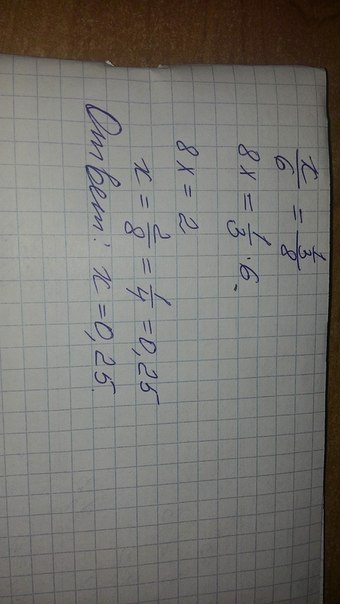 x/6 = 1/3/8
8x = 1/3 · 6.
8x = 2
x = 2/8 = 1/4 = 0,25
Ответ: x = 0,25.